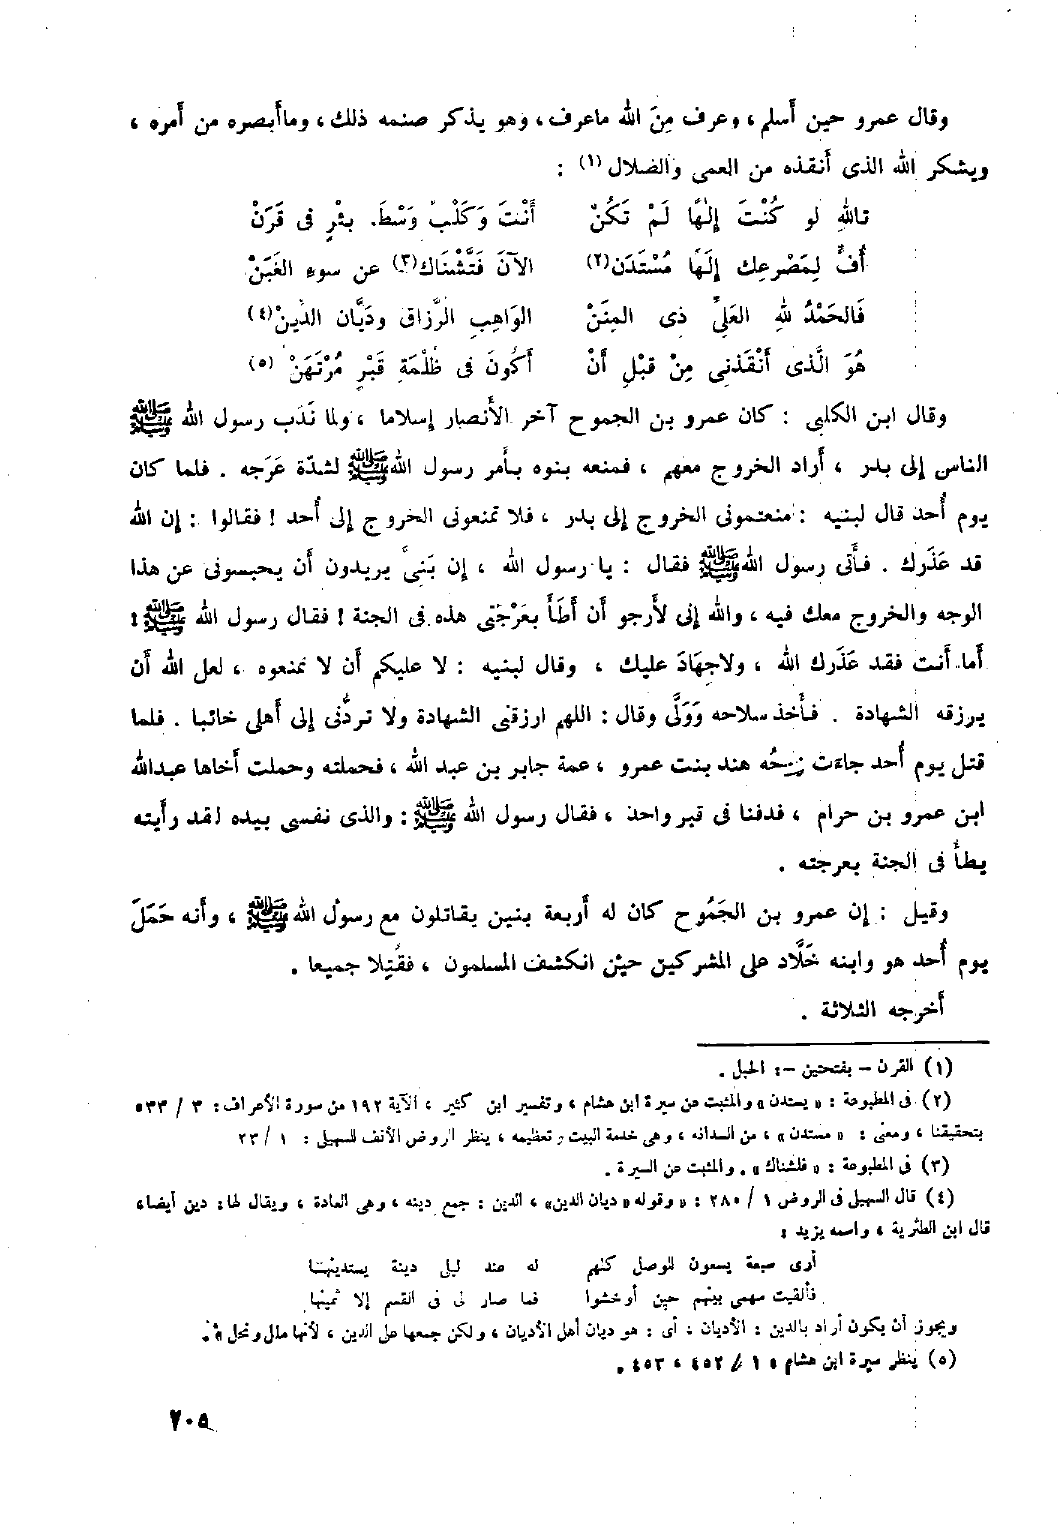 وقال عمرو حين أسلم ، وعرف مِنَ الله ماعرف ، وهو يذكر صنمه ذلك ، وماأبصره من أمره ،
ويشكر الله الذى أنقذه من العمى والضلال (١) :
تاللهِ لو كُنْتَ إِلٰهًا لَمْ تَكُنْ أَنْتَ وَكَلْبٌ وَسْطَ. بئْرٍ فى قَرَنْ
أُفٍّ لِمَصْرعِك إِلَهًا مُسْتَدَن(٢) الآنَ فَتَّشْنَاك(٣) عن سوءِ الغَبَنْ
فَالحَمْدُ للهِ العَلِىِّ ذى المِنَنْ الوَاهِبِ الرَّزاق ودَيَّان الدِّينْ(٤)
هُوَ الَّذى أَنْقَذنِى مِنْ قبْلِ أَنْ أَكُونَ فى ظُلْمَةِ قَبْرٍ مُرْتَهَنْ (٥)
وقال ابن الكلبى : كان عمرو بن الجموح آخر الأنصار إسلاما ، ولما نَدَب رسول الله ﷺ
الناس إلى بدر ، أراد الخروج معهم ، فمنعه بنوه بأمر رسول الله ﷺ لشدّة عَرَجه . فلما كان
يوم أحد قال لبنيه : منعتمونى الخروج إلى بدر ، فلا تمنعونى الخروج إلى أحد ! فقالوا : إن الله
قد عَذَرك . فأتى رسول الله ﷺ فقال : يا رسول الله ، إن بَنِىَّ يريدون أن يحبسونى عن هذا
الوجه والخروج معك فيه ، والله إنى لأرجو أن أَطَأَ بعَرْجَتى هذه فى الجنة ! فقال رسول الله ﷺ :
أما أنت فقد عَذَرك الله ، ولاجِهَادَ عليك ، وقال لبنيه : لا عليكم أن لا تمنعوه ، لعل الله أن
يرزقه الشهادة . فأخذ سلاحه وَوَلَّى وقال : اللهم ارزقنى الشهادة ولا تردُّنى إلى أهلى خائبا . فلما
قتل يوم أُحد جاءَت زوجُه هند بنت عمرو ، عمة جابر بن عبد الله ، فحملته وحملت أخاها عبدالله
ابن عمرو بن حرام ، فدفنا فى قبر واحد ، فقال رسول الله ﷺ : والذى نفسى بيده لقد رأيته
يطأُ فى الجنة بعرجته .
وقيل : إن عمرو بن الجَمُوح كان له أربعة بنين يقاتلون مع رسول الله ﷺ ، وأنه حَمَلَ
يوم أُحد هو وابنه خَلَّاد على المشركين حين انكشف المسلمون ، فقُتِلا جميعا .
أخرجه الثلاثة .
(١) القرن - بفتحتين -: الحبل .
(٢) فى المطبوعة : « يستدن » والمثبت من سيرة ابن هشام ، وتفسير ابن كثير ، الآية ١٩٢ من سورة الأعراف: ٣ / ٥٣٣
بتحقيقنا ، ومعنى : « مستدن » ، من السدانه ، وهى خدمة البيت وتعظيمه ، ينظر الروض الأنف للسهيلى : ١ / ٢٣
(٣) فى المطبوعة : « فلشناك » . والمثبت عن السيرة .
(٤) قال السهيلى فى الروض ١ / ٢٨٠ : « وقوله « ديان الدين» ، الدين : جمع دينه ، وهى العادة ، ويقال لها: دين أيضا،
قال ابن الطثرية ، واسمه يزيد :
أرى سبعة يسعون للوصل كلهم له عند ليلى دينة يستدينها
فألقيت سهمى بينهم حين أوخشوا فما صار لى فى القسم إلا ثمينها
ويجوز أن يكون أراد بالدين : الأديان ، أى : هو ديان أهل الأديان ، ولكن جمعها على الدين ، لأنها ملل ونحل » .
(٥) ينظر سيرة ابن هشام : ١ / ٤٥٢ ، ٤٥٣ .
٢٠٥